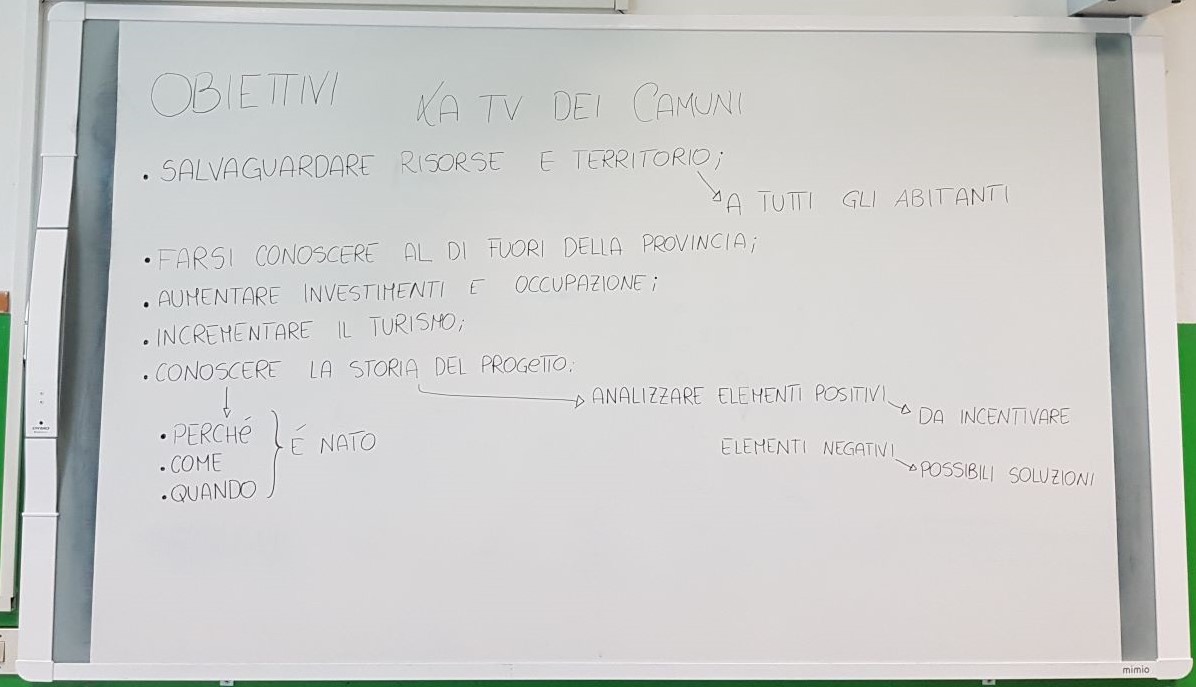 OBIETTIVI
LA TV DEI CAMUNI
• SALVAGUARDARE RISORSE E TERRITORIO;
A TUTTI GLI ABITANTI
• FARSI CONOSCERE AL DI FUORI DELLA PROVINCIA;
• AUMENTARE INVESTIMENTI E OCCUPAZIONE;
• INCREMENTARE IL TURISMO;
• CONOSCERE LA STORIA DEL PROGETTO;
ANALIZZARE ELEMENTI POSITIVI
DA INCENTIVARE
ELEMENTI NEGATIVI
POSSIBILI SOLUZIONI
• PERCHÉ
• COME
• QUANDO
É NATO
mimio